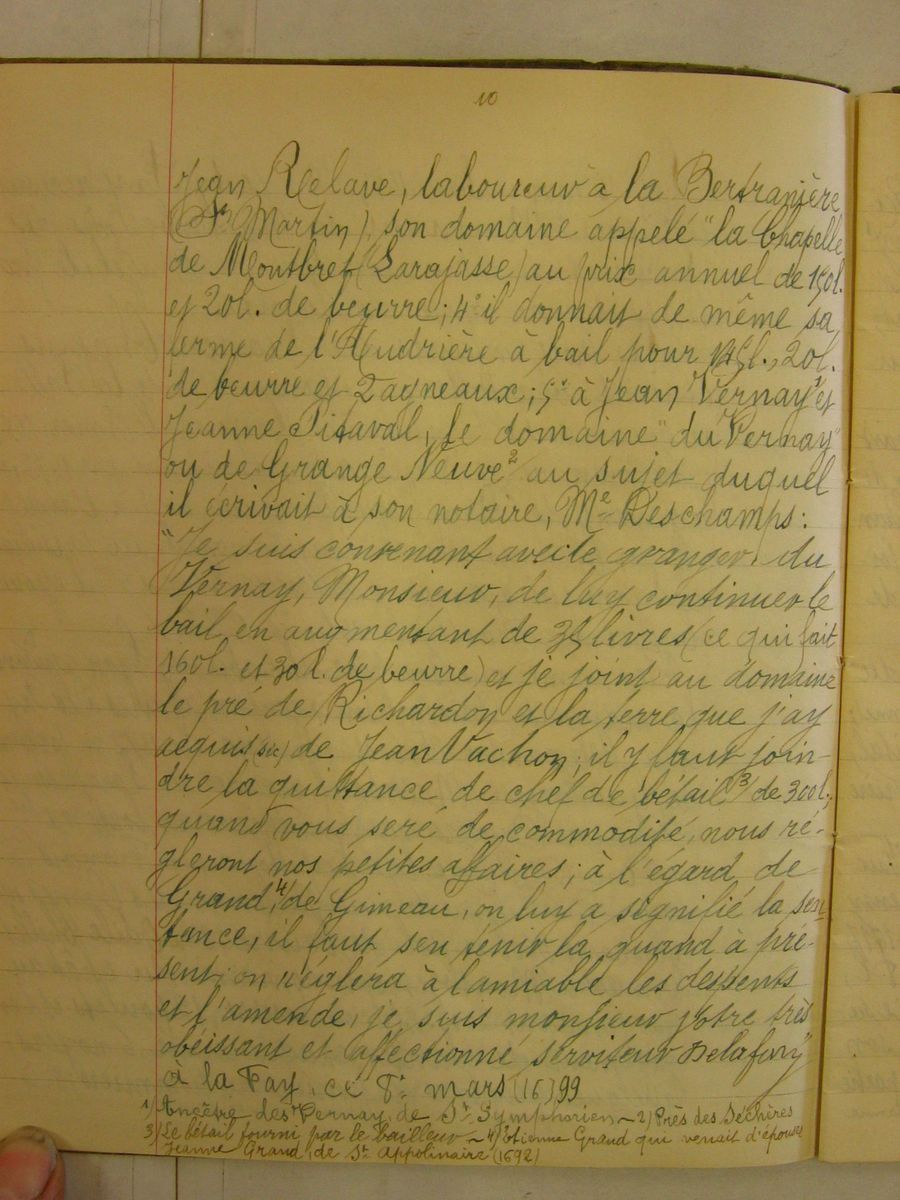 10
Jean Relave, laboureur à la Bertranière
(St Martin), son domaine appelé "la Chapelle
de Montbret (Larajasse) au prix annuel de 150l.
et 20l. de beurre; 4° il donnait de même sa
ferme de l'Audrière à bail pour 145l., 20l.
de beurre et 2 agneaux; 5° à Jean Vernay¹ et
Jeanne Pitaval, le domaine "du Vernay"
ou de Grange Neuve² au sujet duquel
il écrivait à son notaire, Me Deschamps:
"Je suis convenant avec le granger du
Vernay, Monsieur, de luy continuer le
bail en augmentant de 35 livres (ce qui fait
160l. et 30l. de beurre) et je joint au domaine
le pré de Richardon et la terre que j'ay
aequis (sic) de Jean Vachon, il y faut join-
dre la quittance de chef de bétail³ de 300l.
quand vous seré de commodité, nous ré-
gleront nos petites affaires; à l'égard de
Grand,⁴ de Gimeau, on luy a signifié la sen-
tance, il faut sen tenir la quand à pré-
sent; on réglera à lamiable les despents
et l'amende, je suis monsieur votre très
obéissant et affectionné serviteur Delafay"
à la Fay, ce 8e mars (16)99
1) Ancêtre des Vernay de St Symphorien – 2) Près des Séchères
3) Le bétail fourni par le bailleur – 4) Etienne Grand qui venait d'épouser
Jeanne Grand, de St Appolinaire (1692)